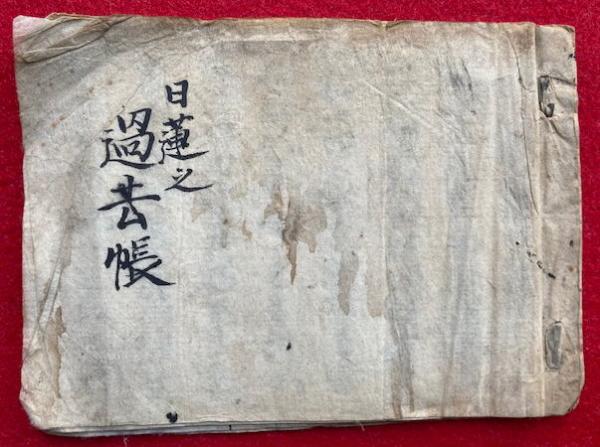 日蓮之
過去帳